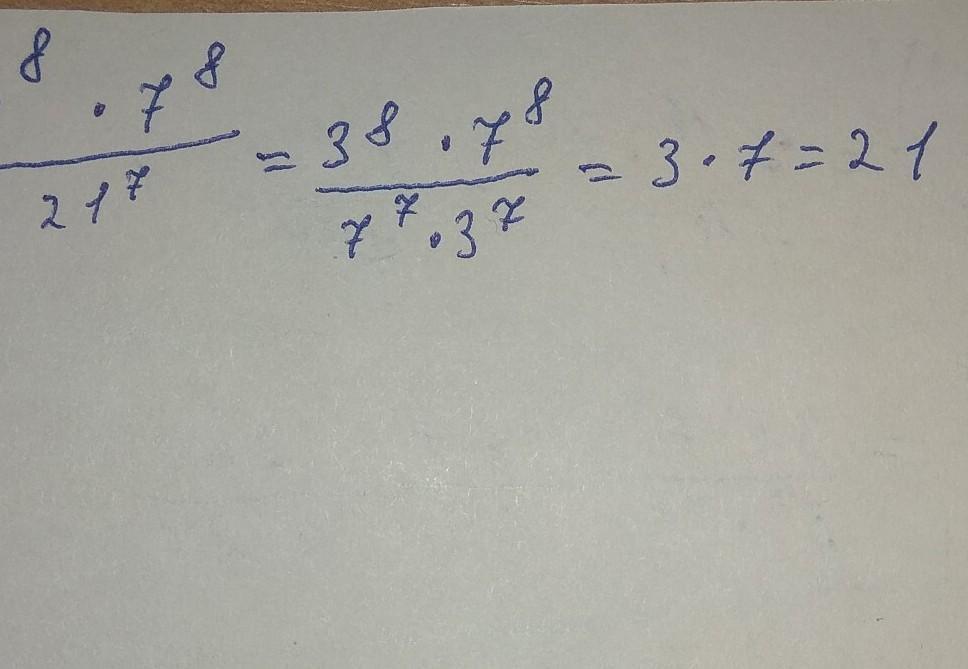 ⁸ · 7⁸ / 21⁷ = 3⁸ · 7⁸ / 7⁷ · 3⁷ = 3 · 7 = 21